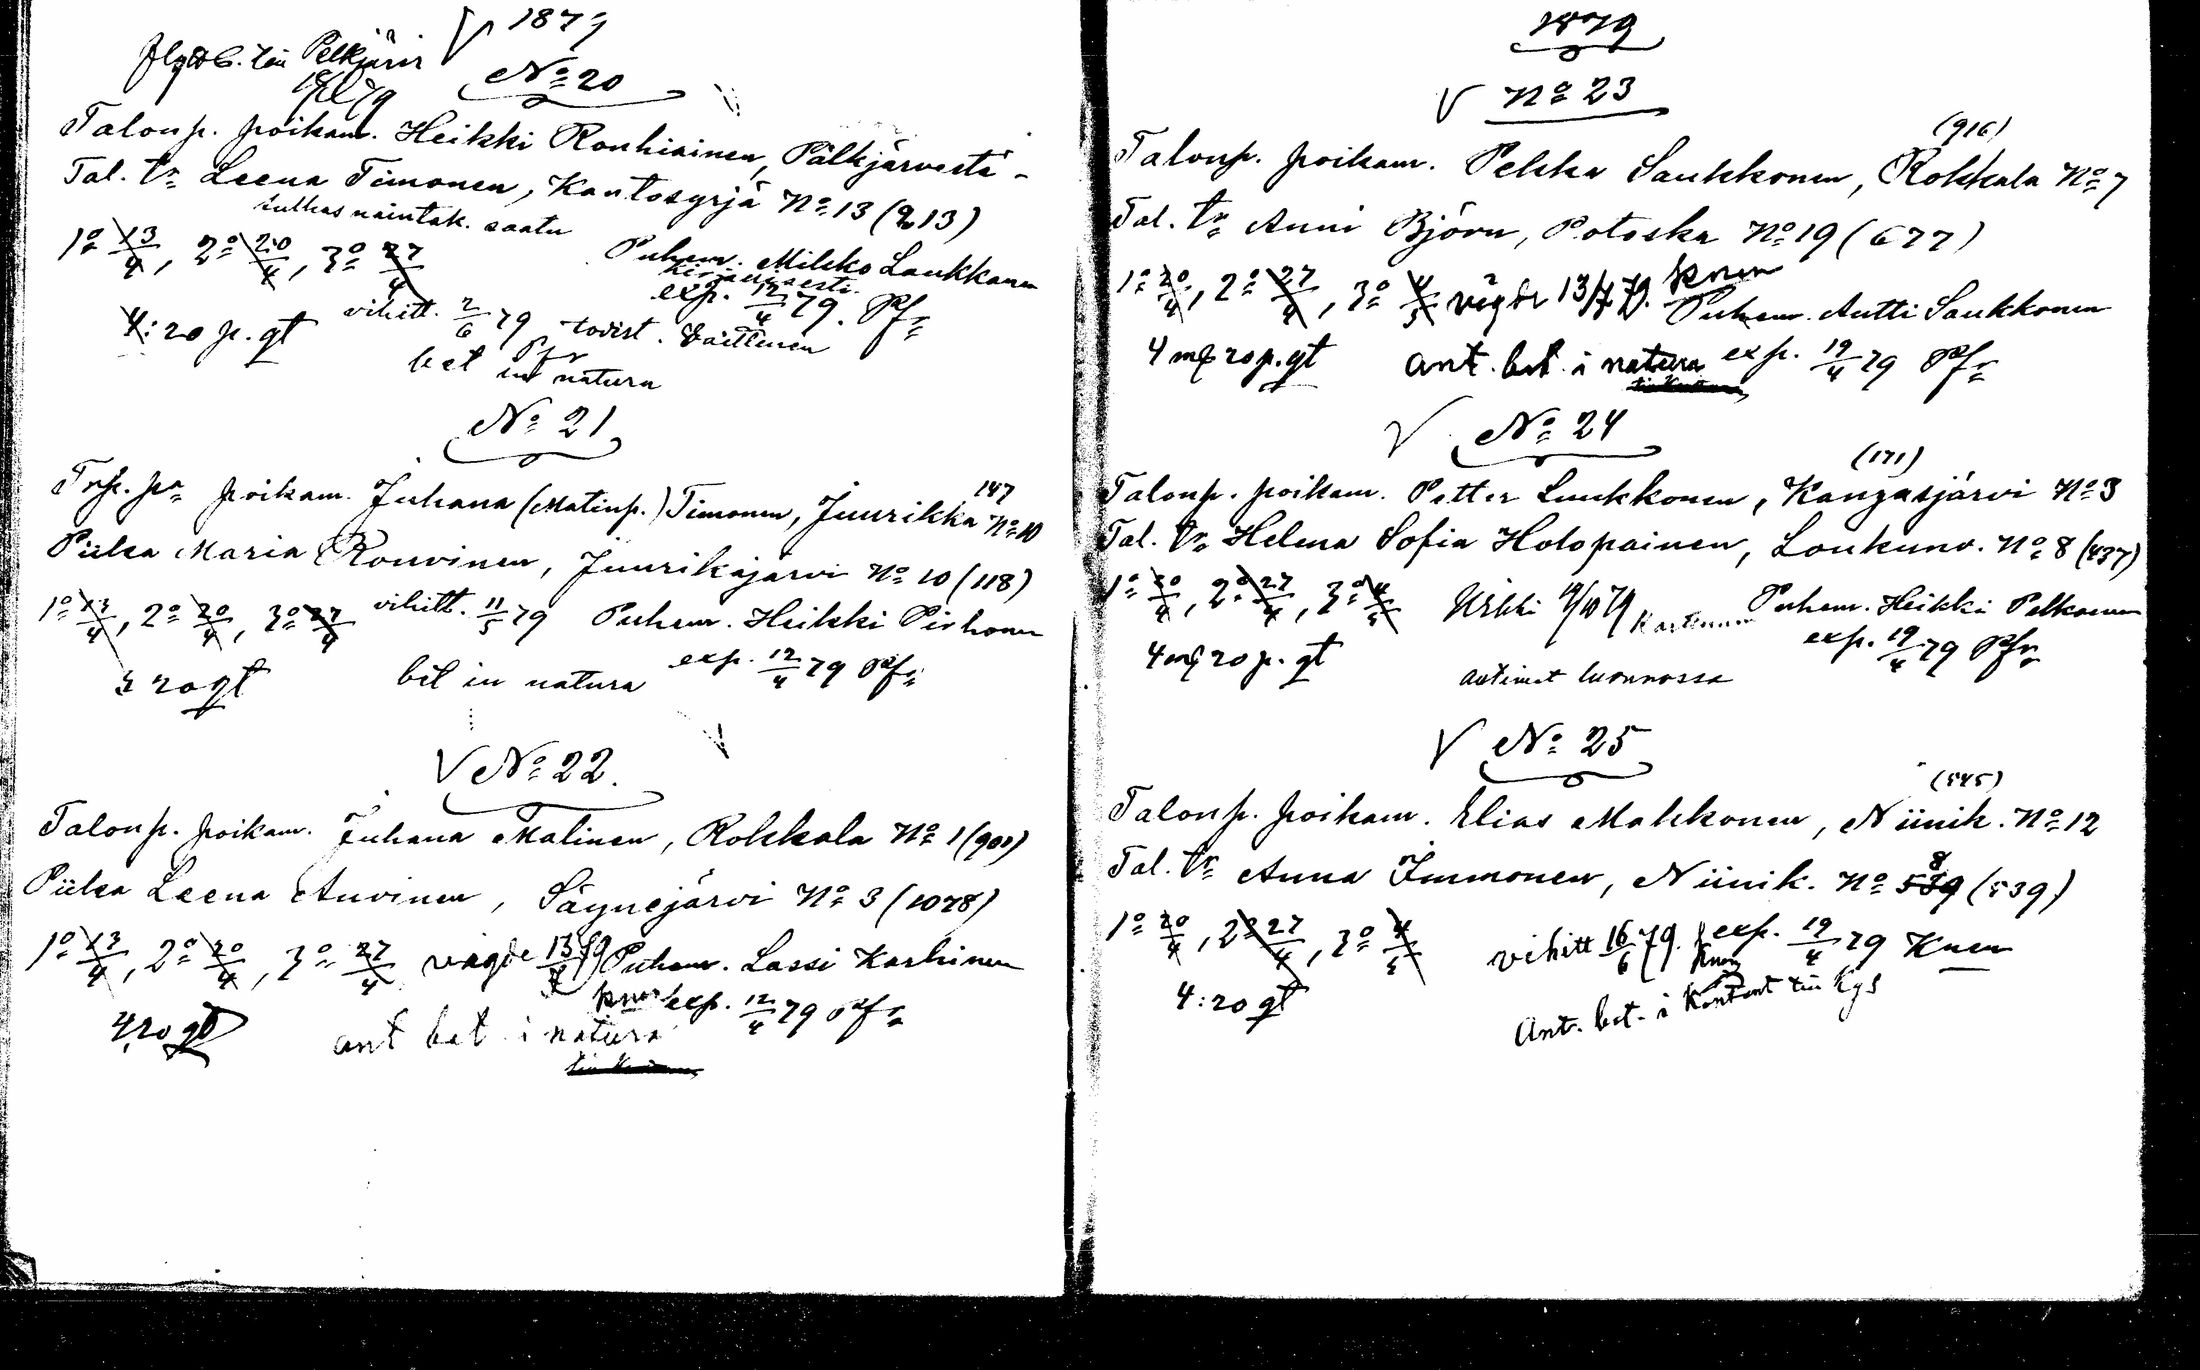 1879
till Pelkjärvi
No 20
Talonp. poikam. Heikki Ronkiainen, Pälkjärvestä
Tal. tr. Leena Timonen, Kontosyrjä No 13 (213)
saatu
1o 13/4, 2o 20/4, 3o 27/4
Puhem. Mikko Laukkanen
kirjallisesti.
exp. 12/4 79. Pfr
4:20 p. gt
vihitt. 2/6 79
bet in natura
No 21
poikam. Juhana (Matinp.) Timonen, Juurikka No 10
147
Piika Maria Rouvinen, Juurikajärvi No 10 (118)
1o 13/4, 2o 20/4, 3o 27/4 vihitt. 11/5 79 Puhem. Heikki Pirhonen
20 gt
bet in natura
exp. 12/4 79 Pfr
No 22.
Talonp. poikam. Juhana Malinen, Rokkala No 1 (900)
Piika Leena Auvinen, Säynejärvi No 3 (1078)
1o 13/4, 2o 20/4, 3o 27/4 vigde 13/ 79 Puhem. Lassi Karhinen
exp. 12/4 79 Pfr
4,20 gt
ant bet i natura
1879
No 23
(916)
Talonp. poikam. Pekka Saukkonen, Rokkala No 7
Tal. tr. Anni Björn, Potoska No 19 (677)
1o 20/4, 2o 27/4, 3o 4/5 vigde 13/7 79. knen
Puhem. Antti Saukkonen
4 mk 20 p. gt
ant. bet. i natura
exp. 19/4 79 Pfr
No 24
(171)
Talonp. poikam. Petter Luukkonen, Kangasjärvi No 3
Tal. tr. Helena Sofia Holopainen, Loukunv. No 8 (437)
1o 20/4, 2o 27/4, 3o 4/5
Puhem. Heikki Pelkonen
exp. 19/4 79 Pfr
4 mk 20 p. gt
antimet luonnossa
No 25
(545)
Talonp. poikam. Elias Makkonen, Niinik. No 12
Tal. tr. Anna Immonen, Niinik. No 8 (539)
1o 20/4, 2o 27/4, 3o 4/5
vihitt 16/6 79.
exp. 19/4 79 Knen
4:20 gt
Ant. bet. i Kontant till Kgs